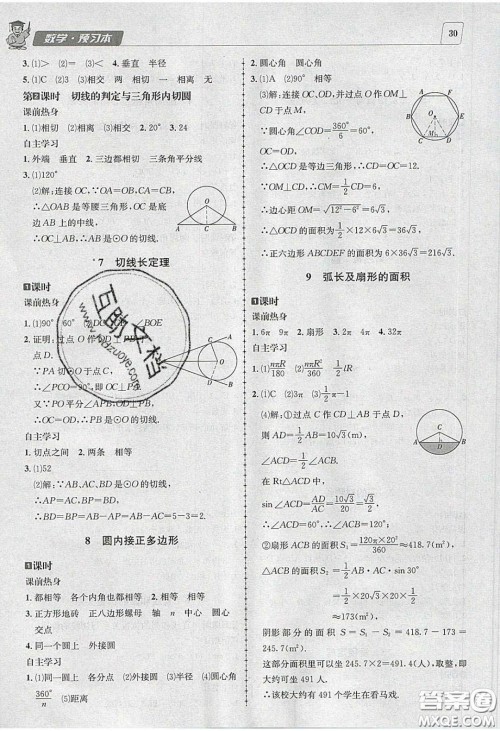 数学·预习本
30
3.(1)> (2)= (3)< 4.垂直 半径
5.(1)C (2)D (3)相交 两 相切 一 相离 无
第2课时 切线的判定与三角形内切圆
课前热身
1.(1)相切 (2)相离 (3)相交 2.20° 3.24
自主学习
1.外端 垂直 2.三边都相切 三条角平分线
3.(1)120°
(2)解:连接OC,∵OA=OB,CA=CB,
∴△OAB是等腰三角形,OC是底
边AB上的中线,
∴OC⊥AB,∴AB是⊙O的切线.
7 切线长定理
1课时
课前热身
1.(1)90° 60°
2.证明:过点O作OD⊥PB于
点D.
∵PA切⊙O于点C,
∴∠PCO=90°,即OC⊥PA.
又∵PO平分∠APB,OD⊥PB,
∴OD=OC.
∴PB是⊙O的切线.
自主学习
1.切点之间 2.两条 相等
3.(1)52
(2)解:∵AB、AC、BD是⊙O的切线,
∴AP=AC,BP=BD,
∴BD=BP=AB-AP=AB-AC=5-3=2.
8 圆内接正多边形
1课时
课前热身
1.都相等 各个内角 2.三 四 相等 相等
3.正方形地砖 正八边形螺母 轴 n 中心 圆心
交点
4.同一个圆上 外接圆
自主学习
1.(1)同一圆上 各分点 (2)外接圆 (3)半径 (4)圆心角
360°/n (5)距离
2.圆心角 圆心角
3.(1)A (2)90°
(3)解:连接OC、OD,并过点O作OM⊥CD
于点M.
∵OC=OD,
∠COD=360°/6=60°,
∴△OCD是等边三角形.
∴OC=CD=OD=12.
∵OM⊥CD,∴CM=1/2CD=6.
∴边心距OM=√(12²-6²)=6√3,
∴△OCD的面积为1/2×12×6√3=36√3,
∴正六边形ABCDEF的面积为6×36√3=216√3.
9 弧长及扇形的面积
1课时
课前热身
1.6π 9π 2.扇形 3.2π 4.32π
自主学习
1.nπR/180 2.nπR²/360 1/2lR
3.(1)C (2)A (3)1/2π-1
(4)解:①过点A作AD⊥BC于点D,
则AD=10√3(m),
∠ACD=180°-120°=60°.
在Rt△ACD中,
sin∠ACD=AD/AC=10√3/20=√3/2,
∴∠ACD=60°.
②扇形ACB的面积S₁=120π×20²/360≈418.7(m²),
△ACB的面积S₂=1/2BC·AC·sin60°
=1/2×20×20×√3/2
≈173(m²).
阴影部分的面积S=S₁-S₂=418.7-173=
245.7(m²).
这部分面积里可以坐大约245.7×2≈491.4(人),取整,即
大约可坐491人.
∴该校大约有491个学生在看马戏.
互助文档
www.hdzuoye.com
答案圈
MXQE.COM